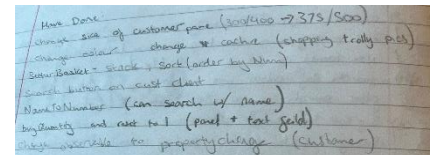 Have Done:
change size of customer pane (300/400 → 375/500)
change colour change cache (shopping trolly pics)
Super Basket - stack, sort (order by Num)
Search button on cust client
NameToNumber (can search w/ name)
buyQuantity and reset to 1 (panel + text field)
observable to propertychange (customer)